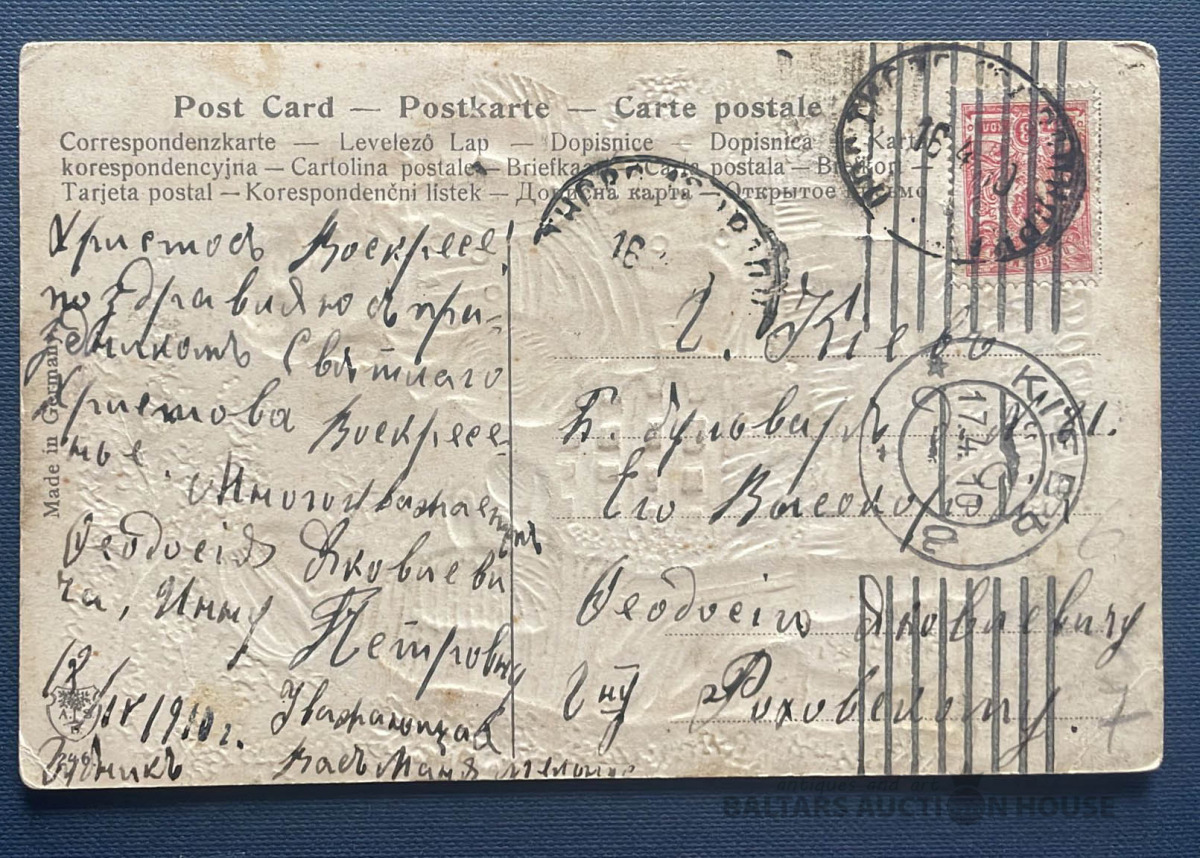 Post Card — Postkarte — Carte postale
Correspondenzkarte — Levelező Lap — Dopisnice — Dopisnica — Kart
korespondencyjna — Cartolina postale — Briefkaa postala —
Tarjeta postal — Korespondenčni listek — Дописна карта — Открытое
Made in Germany
Христосъ Воскресе!
поздравляю съ пра-
здникомъ Свѣтлаго
Христова Воскресе-
нье. Многоуважаемыхъ
Ѳеодосія Яковлеви
ча, Инну Петровну
IV 1910 г. Уважающая
Васъ Маня
Г. Кіевъ
Б. бульваръ
Его Высокоп
Ѳеодосію Яковлевичу
Гну Роховскому.
16 4 10
16
КІЕВЪ
17 4 10
BALTARS AUCTION HOUSE